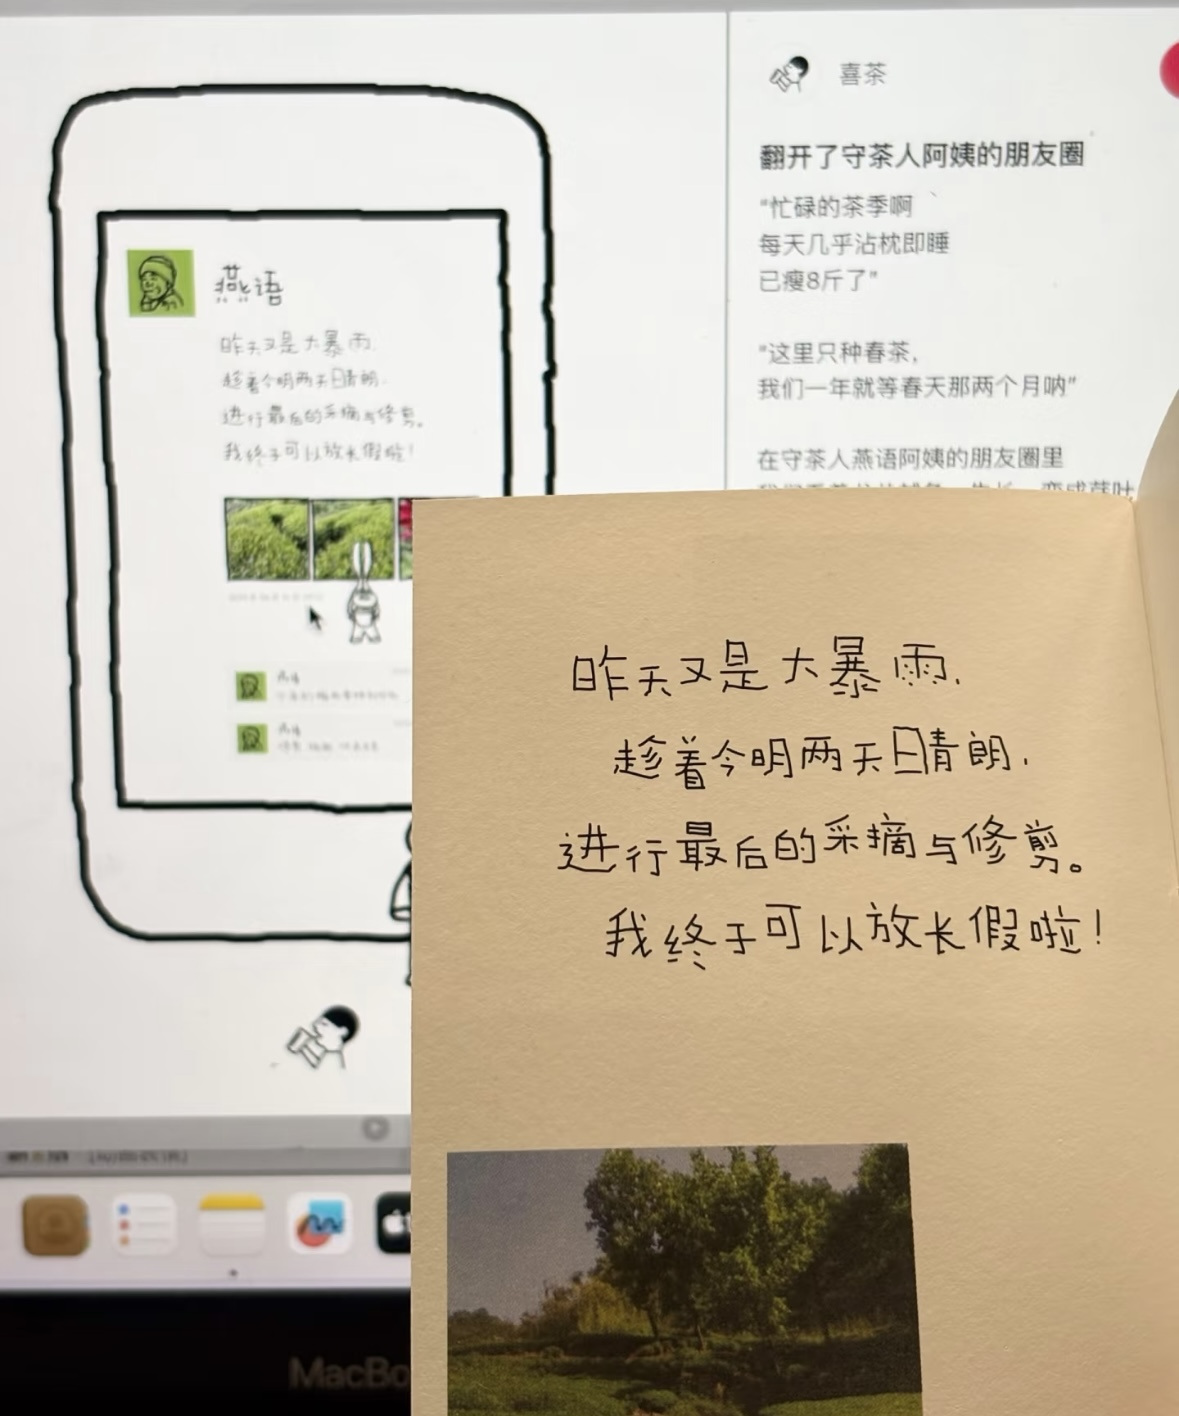 喜茶
翻开了守茶人阿姨的朋友圈
“忙碌的茶季啊
每天几乎沾枕即睡
已瘦8斤了”
“这里只种春茶,
我们一年就等春天那两个月呐”
在守茶人燕语阿姨的朋友圈里
燕语
昨天又是大暴雨,
趁着今明两天晴朗,
进行最后的采摘与修剪。
我终于可以放长假啦!
昨天又是大暴雨,
趁着今明两天晴朗,
进行最后的采摘与修剪。
我终于可以放长假啦!
MacBo